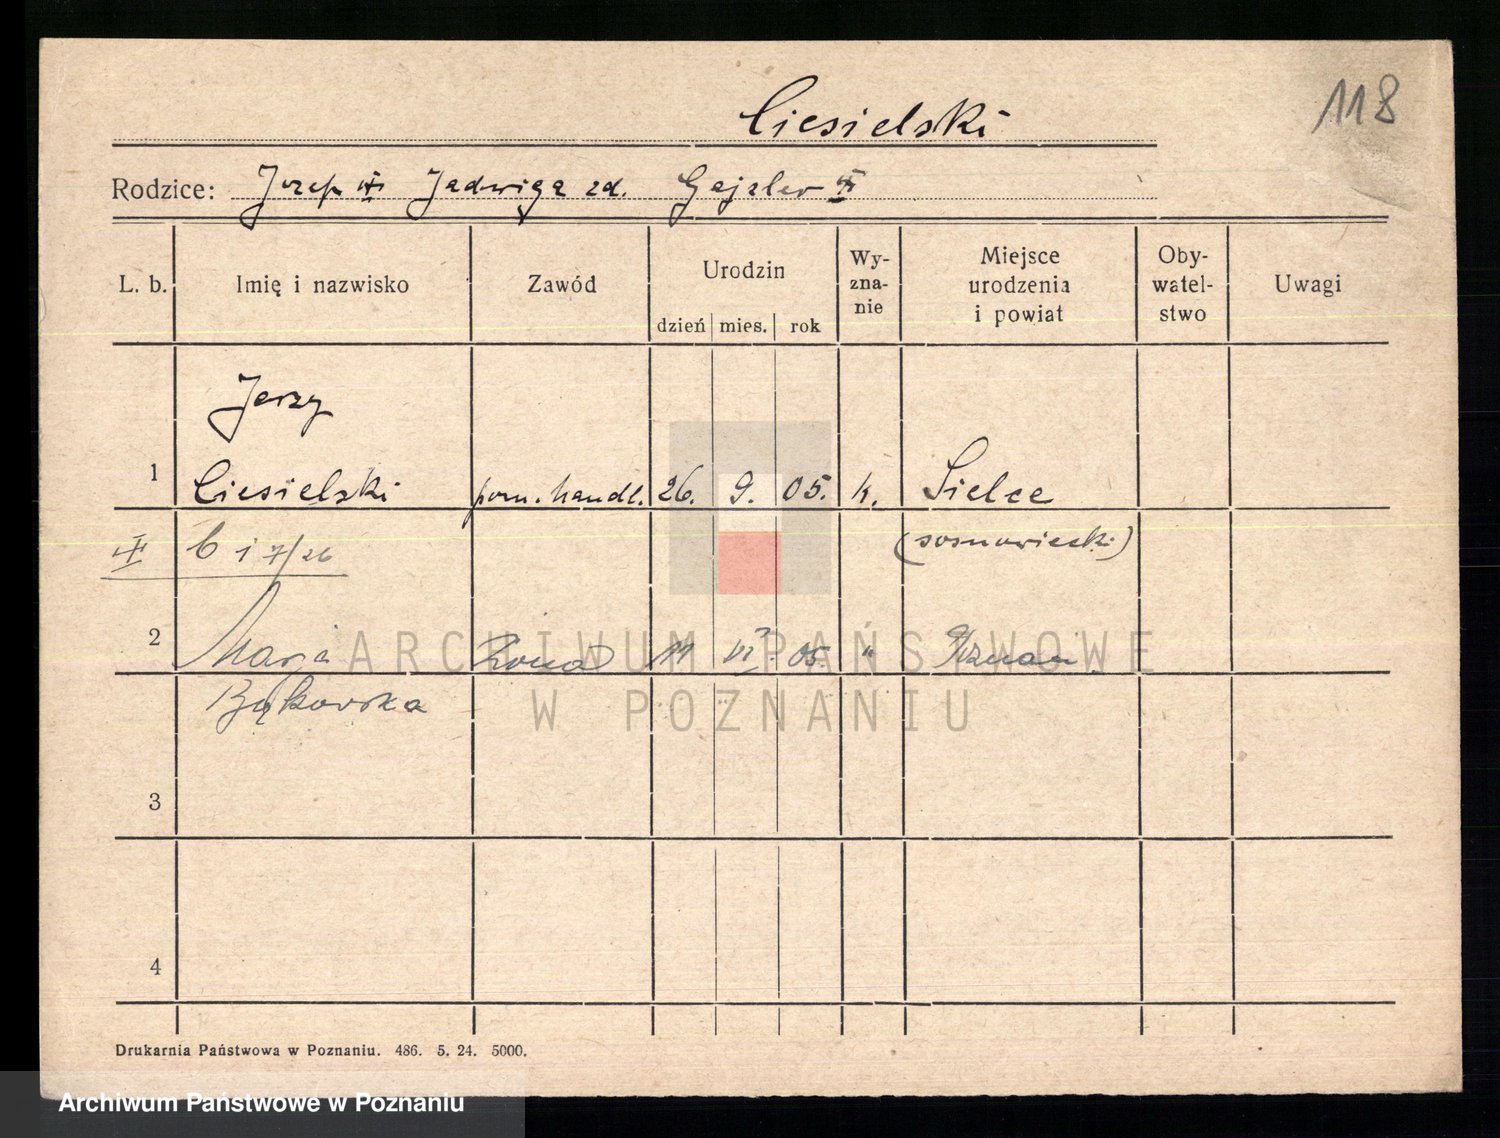 118
Ciesielski
Rodzice: Józef Jadwiga zd. Gajzler
L. b. Imię i nazwisko Zawód Urodzin dzień mies. rok Wyznanie Miejsce urodzenia i powiat Obywatelstwo Uwagi
Jerzy
1 Ciesielski pom. handl. 26. 9. 05. k. Sielce
7/26 (sosnowiecki)
2 Marja żona 11 VI 05. " Poznan
Bąkowska
3
4
ARCHIWUM PAŃSTWOWE
W POZNANIU
Drukarnia Państwowa w Poznaniu. 486. 5. 24. 5000.
Archiwum Państwowe w Poznaniu